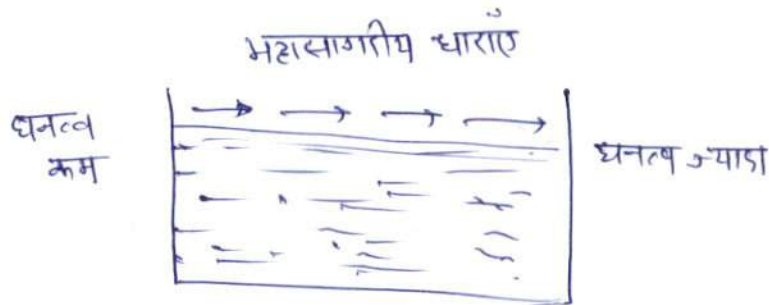 महासागरीय धाराएँ
घनत्व
कम
घनत्व ज्यादा